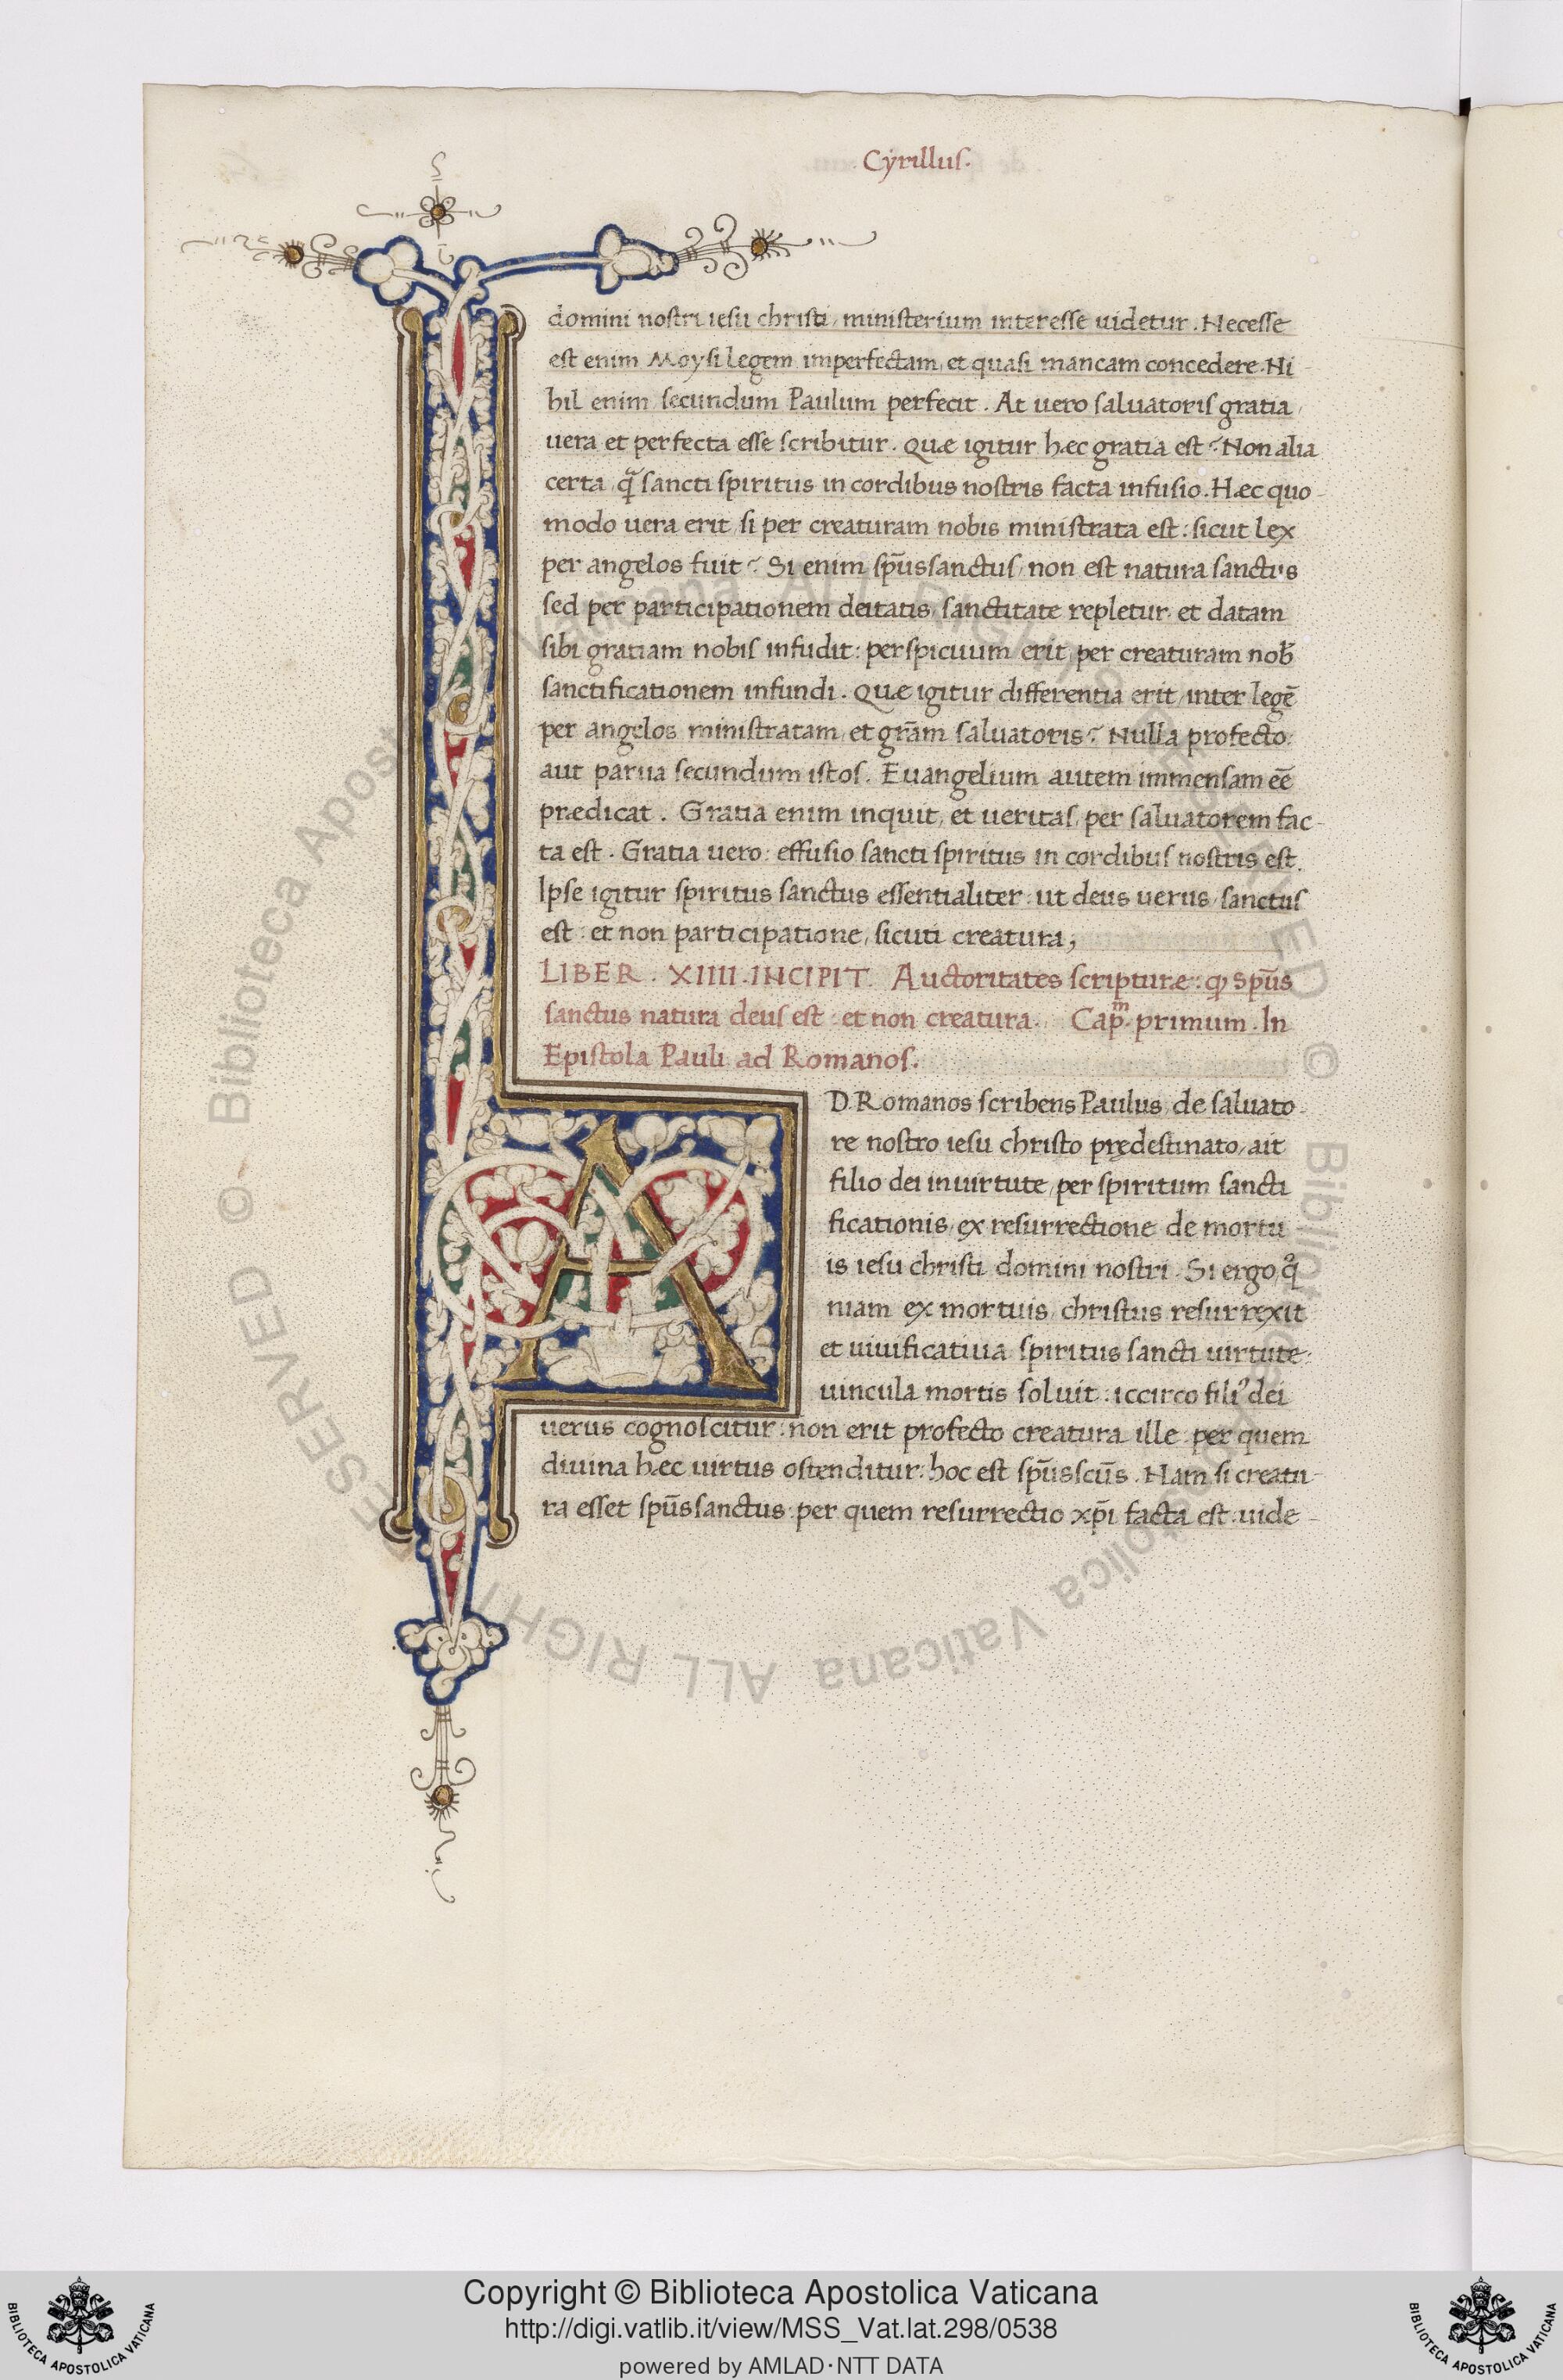 Cyrillus.
domini nostri iesu christi, ministerium interesse uidetur. Necesse
est enim Moysi legem imperfectam, et quasi mancam concedere. Ni
hil enim, secundum Paulum perfecit. At uero saluatoris gratia,
uera et perfecta esse scribitur. Quæ igitur hæc gratia est? Non alia
certa, q̃ sancti spiritus in cordibus nostris facta infusio. Hæc quo-
modo uera erit, si per creaturam nobis ministrata est: sicut lex
per angelos fuit? Si enim sp̄us sanctus, non est natura sanctus
sed per participationem deitatis, sanctitate repletur, et datam
sibi gratiam nobis infudit: perspicuum erit, per creaturam nob̃
sanctificationem infundi. Quæ igitur differentia erit, inter legē
per angelos ministratam, et grām saluatoris? Nulla profecto:
aut parua secundum istos. Euangelium autem immensam eē
prædicat. Gratia enim inquit, et ueritas, per saluatorem fac-
ta est. Gratia uero: effusio sancti spiritus in cordibus nostris est.
Ipse igitur spiritus sanctus essentialiter: ut deus uerus, sanctus
est: et non participatione, sicuti creatura;
LIBER. XIIII. INCIPIT. Auctoritates scripturæ: ꝙ sp̄us
sanctus natura deus est: et non creatura. Cap.ᵐ primum. In
Epistola Pauli ad Romanos.
AD Romanos scribens Paulus, de saluato-
re nostro iesu christo prędestinato, ait
filio dei in uirtute, per spiritum sancti
ficationis, ex resurrectione de mortu
is iesu christi domini nostri. Si ergo qͦ
niam ex mortuis, christus resurrexit
et uiuificatiua spiritus sancti uirtute:
uincula mortis soluit: iccirco fili⁹ dei
uerus cognoscitur: non erit profecto creatura ille: per quem
diuina hæc uirtus ostenditur: hoc est sp̄us scūs. Nam si creatu-
ra esset sp̄us sanctus: per quem resurrectio xp̄i facta est: uide-
Copyright © Biblioteca Apostolica Vaticana
http://digi.vatlib.it/view/MSS_Vat.lat.298/0538
powered by AMLAD·NTT DATA
BIBLIOTECA APOSTOLICA VATICANA
BIBLIOTECA APOSTOLICA VATICANA
© Biblioteca Apostolica Vaticana ALL RIGHTS RESERVED